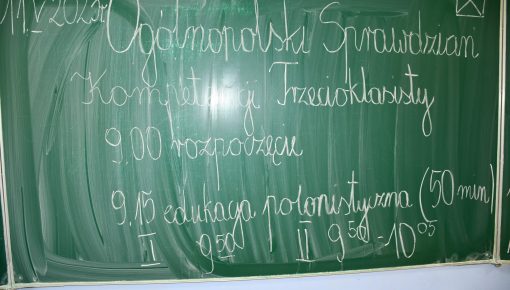 11.V.2023r.
Ogólnopolski Sprawdzian
Kompetencji Trzecioklasisty
9.00 rozpoczęcie
9.15 edukacja polonistyczna (50 min)
I 9 50 II 9 50 - 10 05